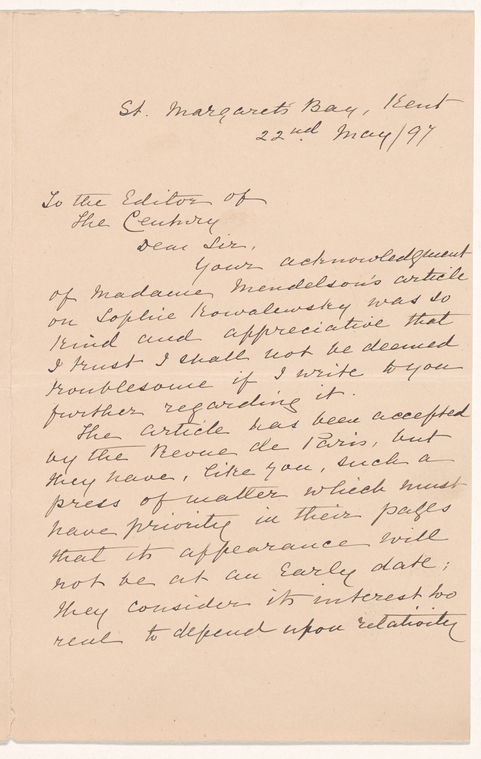 St. Margaret's Bay, Kent
22nd May/97
To the Editor of
The Century
Dear Sir,
Your acknowledgment
of Madame Mendelson's article
on Sophie Kowalewsky was so
kind and appreciative that
I trust I shall not be deemed
troublesome if I write to you
further regarding it.
The article has been accepted
by the Revue de Paris, but
they have, like you, such a
press of matter which must
have priority in their pages
that its appearance will
not be at an early date;
they consider its interest too
real to depend upon relativity